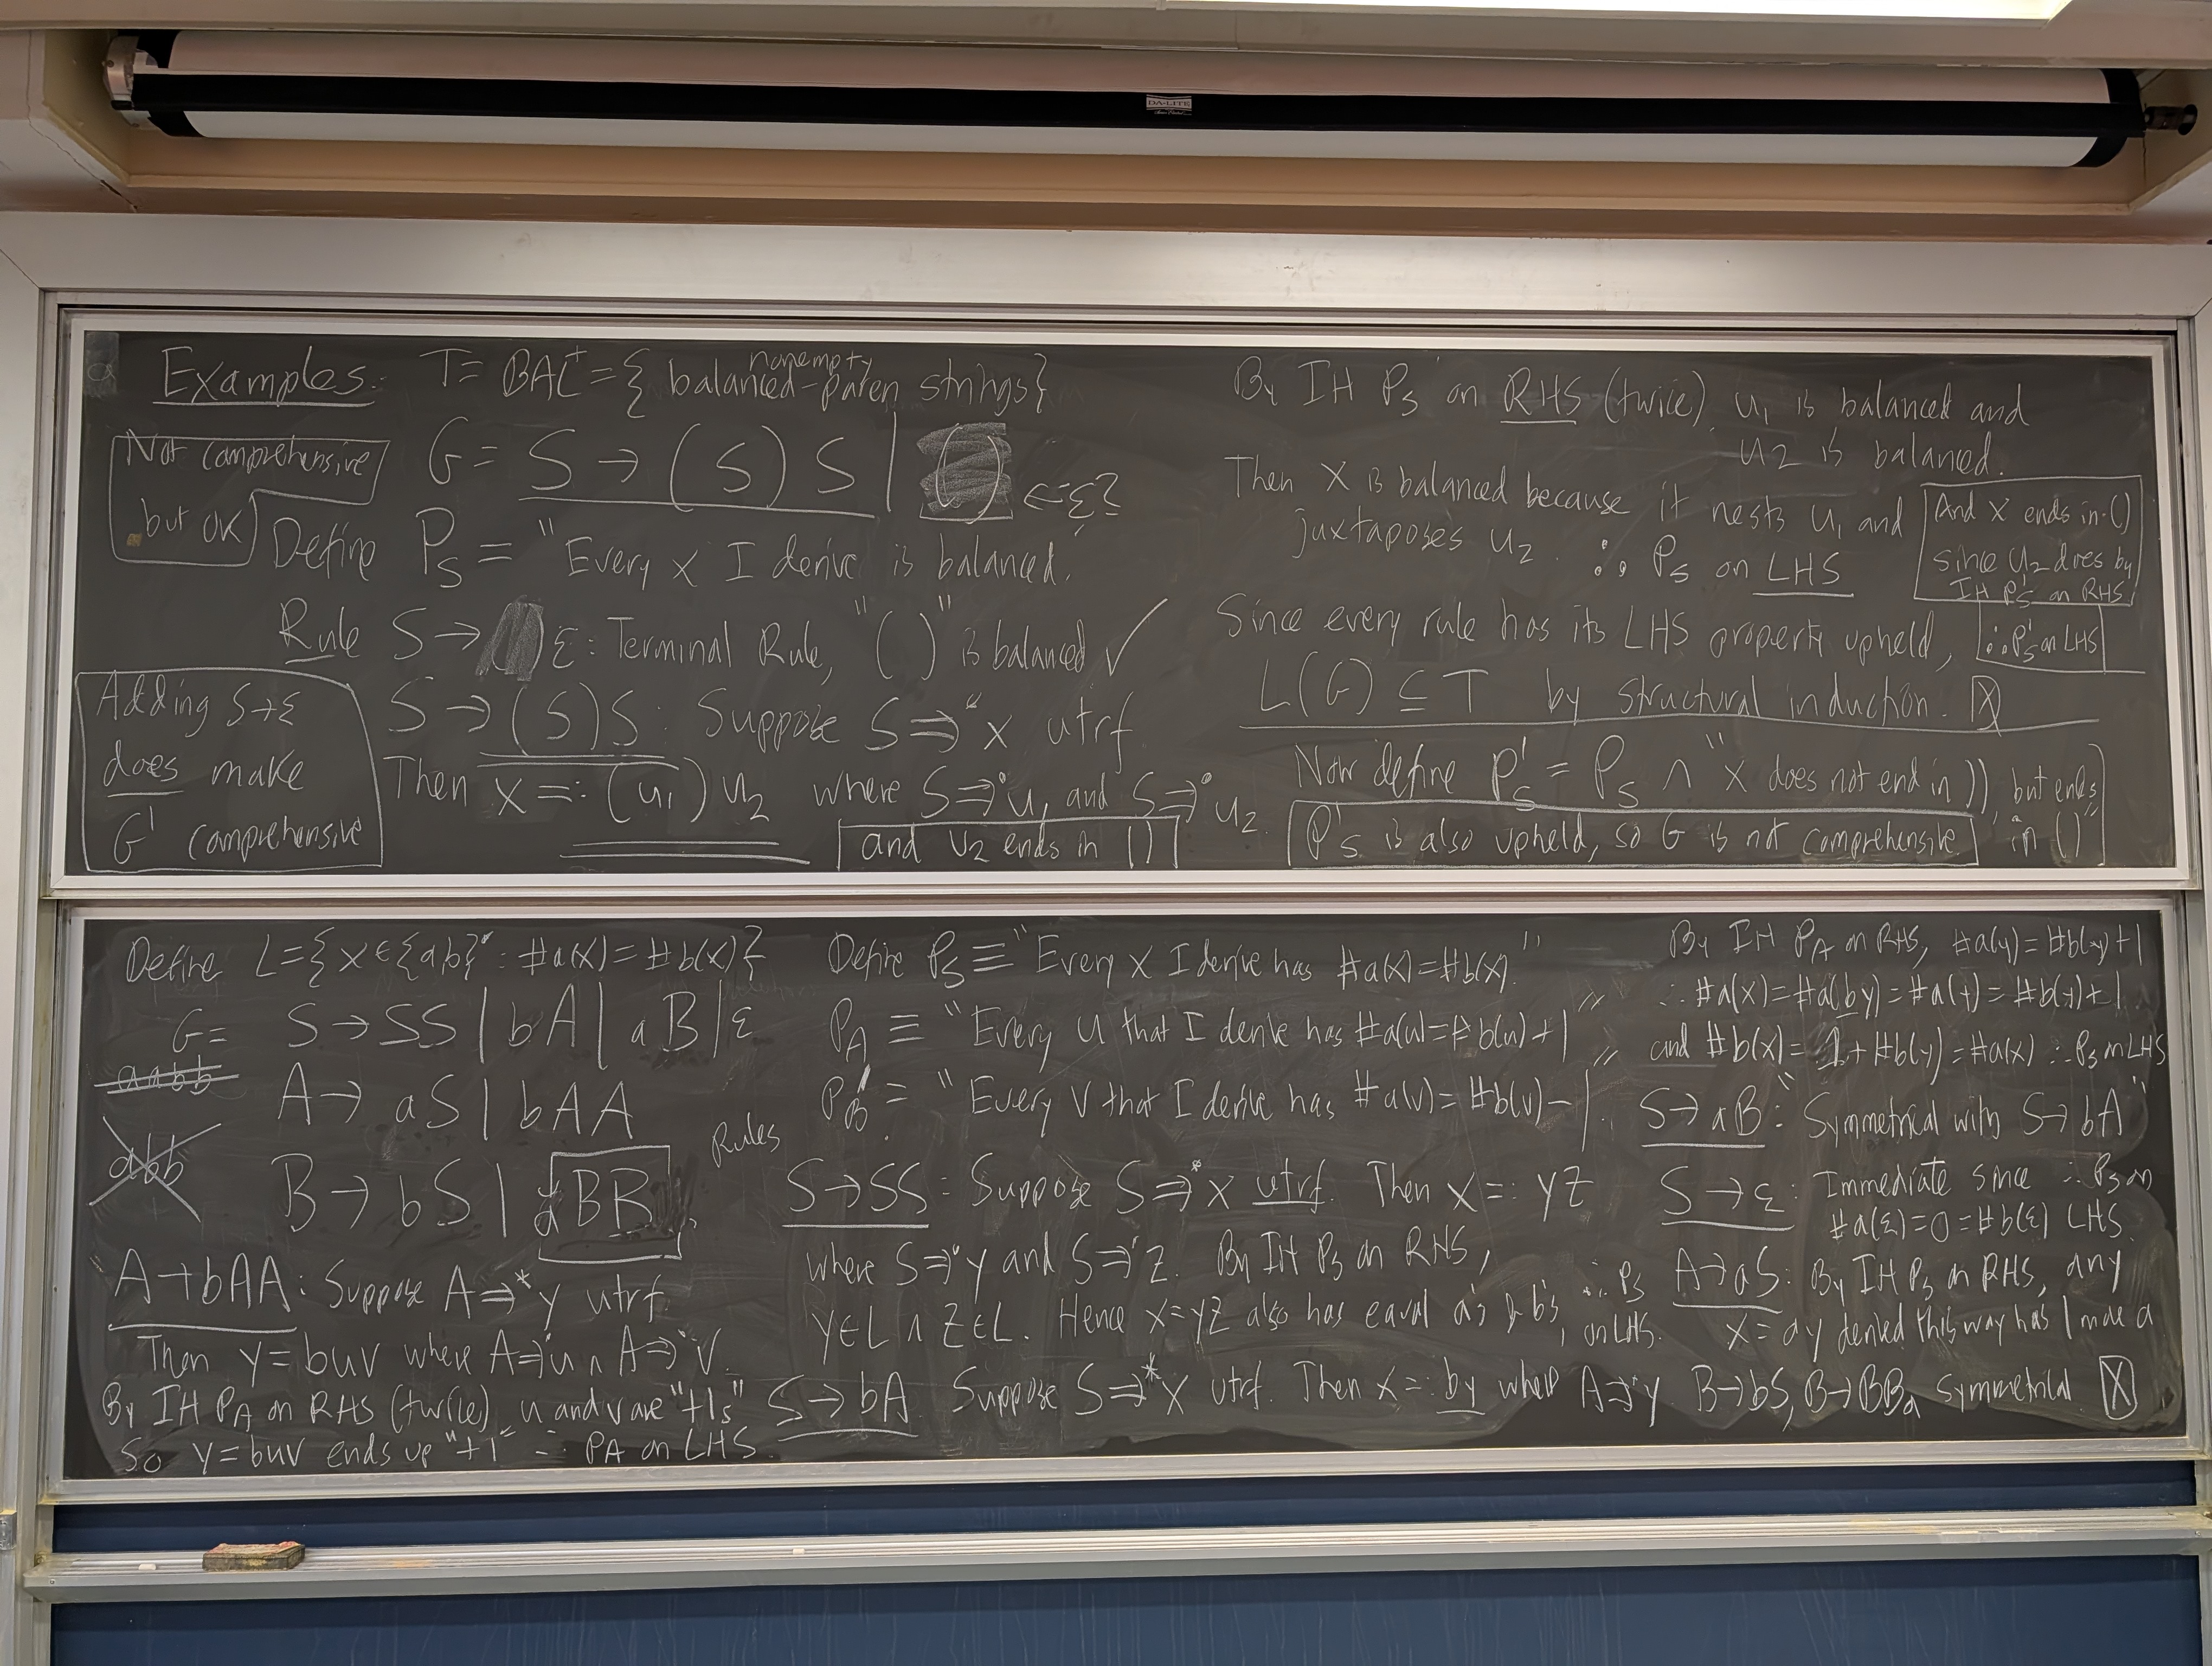 DA-LITE
Examples: T = BAL⁺ = { nonempty balanced-paren strings}
Not comprehensive
but OK
G = S → (S) S | () <=ε?
Define P_S = "Every x I derive is balanced."
Rule S → ε: Terminal Rule, "( )" is balanced ✓
S → (S)S: Suppose S ⇒* x utrf.
Then x =: (u₁) u₂ where S ⇒* u₁ and S ⇒* u₂.
and u₂ ends in ()
Adding S→ε
does make
G' comprehensive
By IH P_S on RHS (twice), u₁ is balanced and
u₂ is balanced.
Then x is balanced because it nests u₁ and
juxtaposes u₂. ∴ P_S on LHS
And x ends in ()
since u₂ does by
IH P'_S on RHS
∴ P'_S on LHS
Since every rule has its LHS property upheld,
L(G) ⊆ T by structural induction. ☒
Now define P'_S = P_S ∧ "x does not end in )), but ends
in ()"
P'_S is also upheld, so G is not comprehensive
Define L={x∈{a,b}*: #a(x)=#b(x)}
G = S → SS | bA | aB | ε
aabb
A → aS | bAA
abb
B → bS | aBB
A→bAA: Suppose A ⇒* y utrf.
Then y = buv where A⇒*u ∧ A⇒*v.
By IH P_A on RHS (twice), u and v are "+1s"
So y = buv ends up "+1" ∴ P_A on LHS.
Define P_S ≡ "Every x I derive has #a(x)=#b(x)."
P_A ≡ "Every u that I derive has #a(u)=#b(u)+1"
P_B = "Every v that I derive has #a(v)=#b(v)-1."
Rules
S→SS: Suppose S⇒* x utrf. Then x =: yz
where S⇒*y and S⇒*z. By IH P_S on RHS,
y∈L ∧ z∈L. Hence x=yz also has equal a's & b's, ∴ P_S on LHS.
S→bA Suppose S⇒*x utrf. Then x =: by where A⇒*y
By IH P_A on RHS, #a(y)=#b(y)+1
∴ #a(x)=#a(by)=#a(y)=#b(y)+1
and #b(x)= 1+#b(y)=#a(x) ∴ P_S on LHS
S→aB: "Symmetrical with S→bA"
S→ε: Immediate since ∴ P_S on
#a(ε)=0=#b(ε) LHS.
A→aS: By IH P_S on RHS, any
x=ay derived this way has 1 more a
B→bS, B→BBa symmetrical. ☒